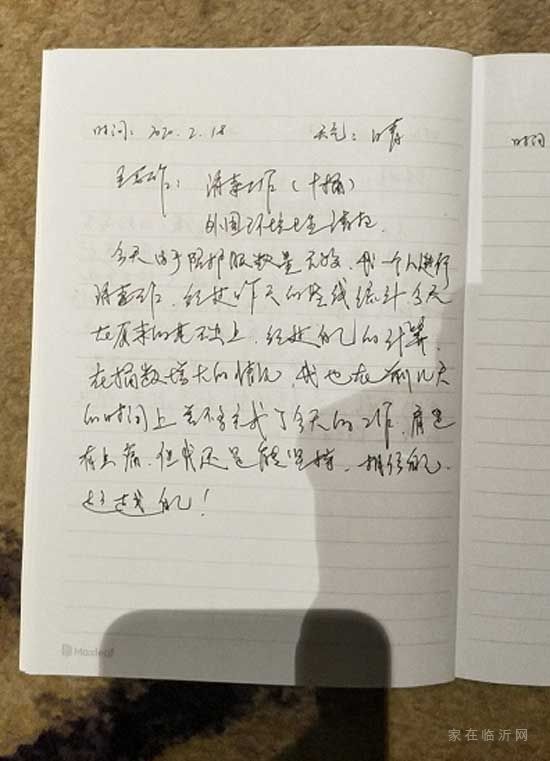 时间：2020.2.18 天气：晴
时间
主要工作：消毒工作（十桶）
外围环境卫生清扫.
今天由于防护服数量不够，我一个人进行
消毒工作，经过昨天的路线统计，今天
在原来的基础上，经过自己的计算，
在桶数增大的情况，我也在前几天
的时间上差不多完成了今天的工作，肩
有点痛，但我还是能坚持，相信自己，
超越自己！
Maxleaf
家在临沂网